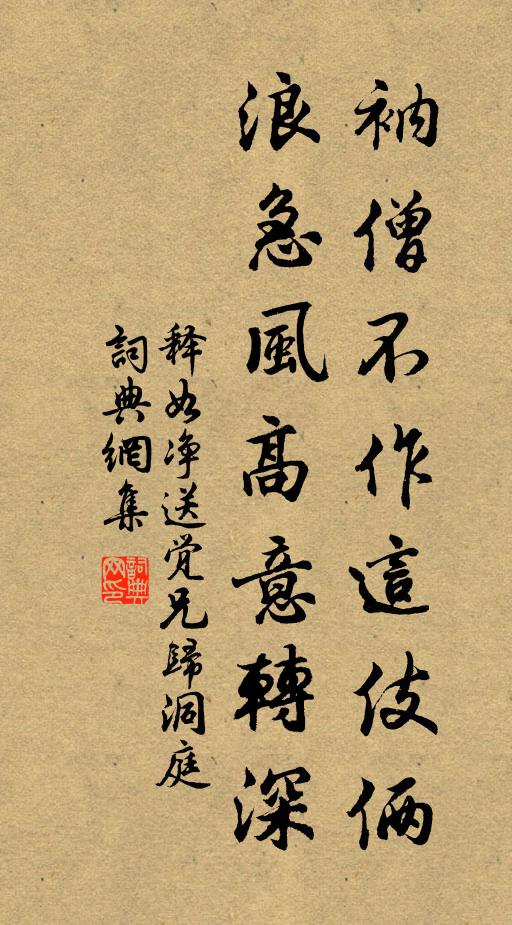 衲僧不作這伎倆
浪急風高意轉深
释如净送觉兄歸洞庭
詞典網集
詞典网印